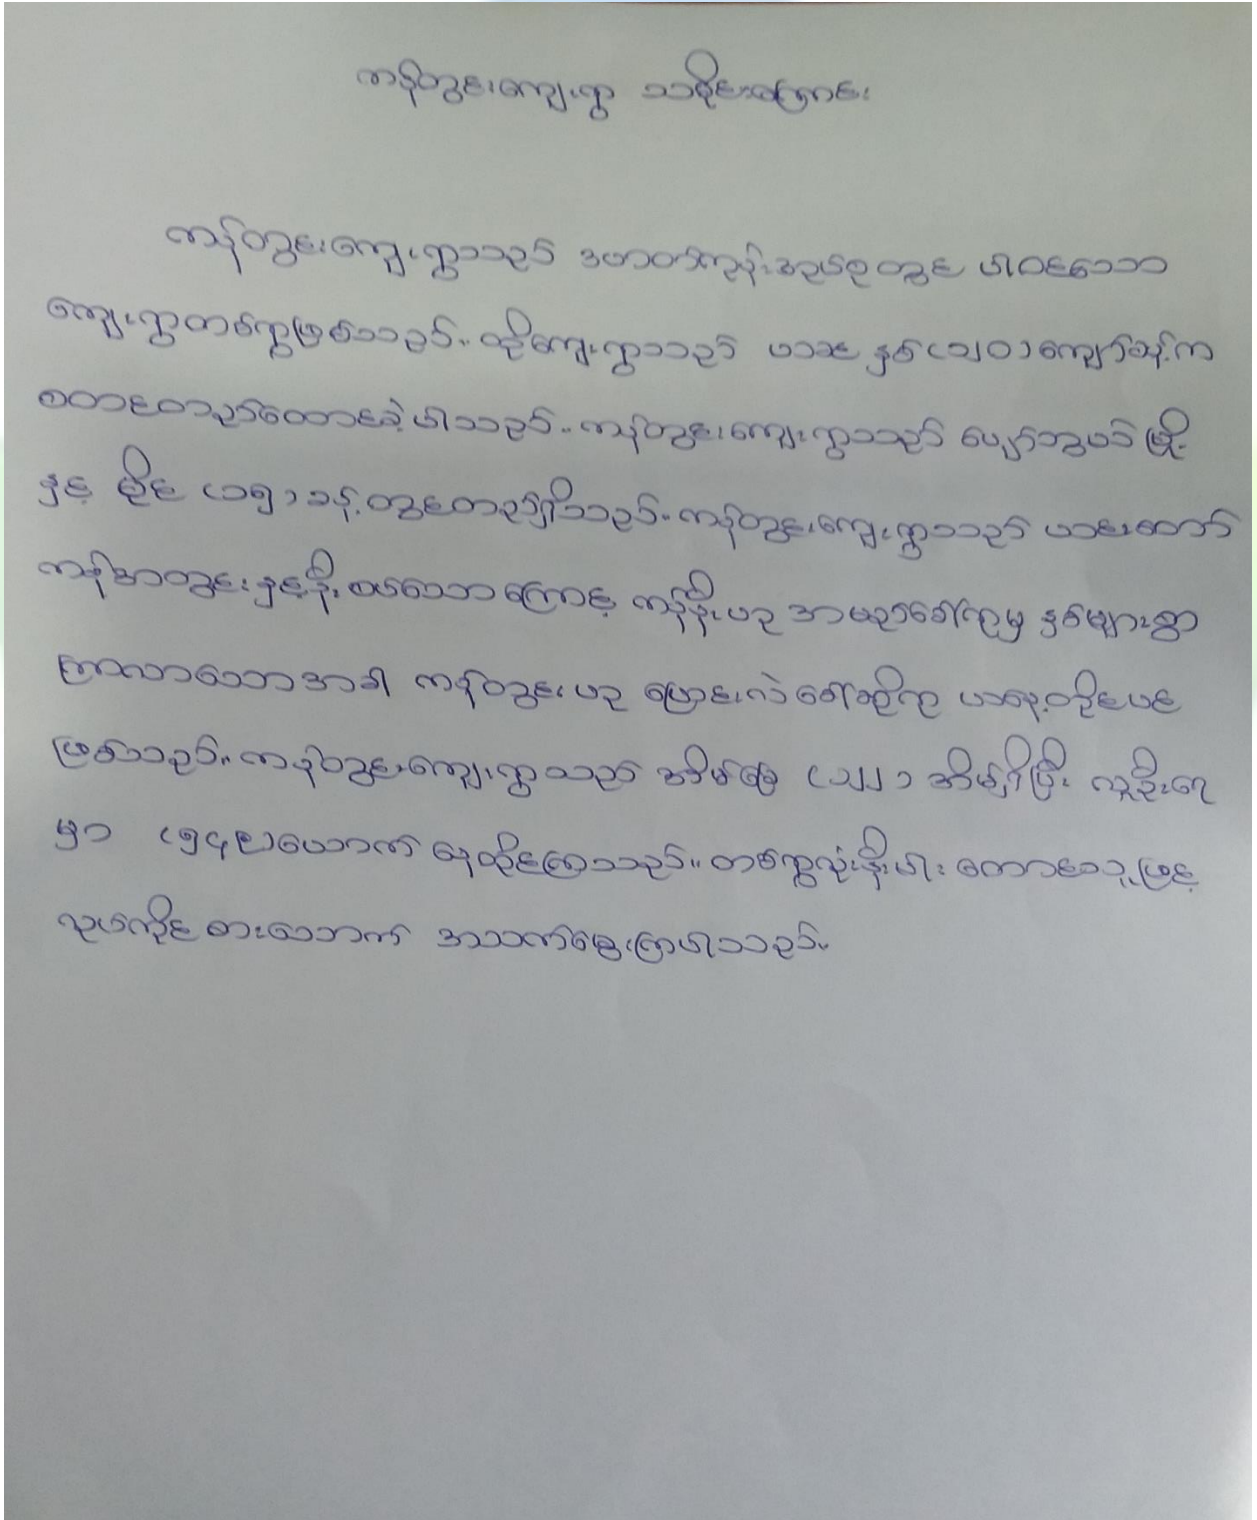 ကန်တွင်းကျေးရွာ သမိုင်းကြောင်း
ကန်တွင်းကျေးရွာသည် ဒဟတ်ကုန်းအုပ်စု တွင် ပါဝင်သော
ကျေးရွာတစ်ရွာဖြစ်သည်။ ထိုကျေးရွာသည် ယခု နှစ် (၁၂၀) ကျော်ခန့်က
စတင်တည်ထောင်ခဲ့ပါသည်။ ကန်တွင်းကျေးရွာသည် ပျော်ဘွယ် မြို့
နှင့် မိုင် (၁၅) ခန့် တွင်တည်ရှိသည်။ ကန်တွင်းကျေးရွာသည် ယင်းတော်
ကန်အတွင်း နှင့်နီး စပ်သော ကြောင့် ကန်နီး ဟု အမည်ခေါ်ရာမှ နှစ်များစွာ
ကြာလာသောအခါ ကန်တွင်း ဟု ပြောင်းလဲ ခေါ်ဆိုရာ ယနေ့တိုင်ပင်
ဖြစ်သည်။ ကန်တွင်းကျေးရွာသည် အိမ်ခြေ (၁၂၂) အိမ်ရှိပြီး လူဦးရေ
မှာ (၅၄၉) ယောက် နေထိုင်ကြသည်။ တစ်ရွာလုံးနီးပါး တောင်သူ ဖြင့်
လုပ်ကိုင် စားသောက် အသက်မွေးကြပါသည်။